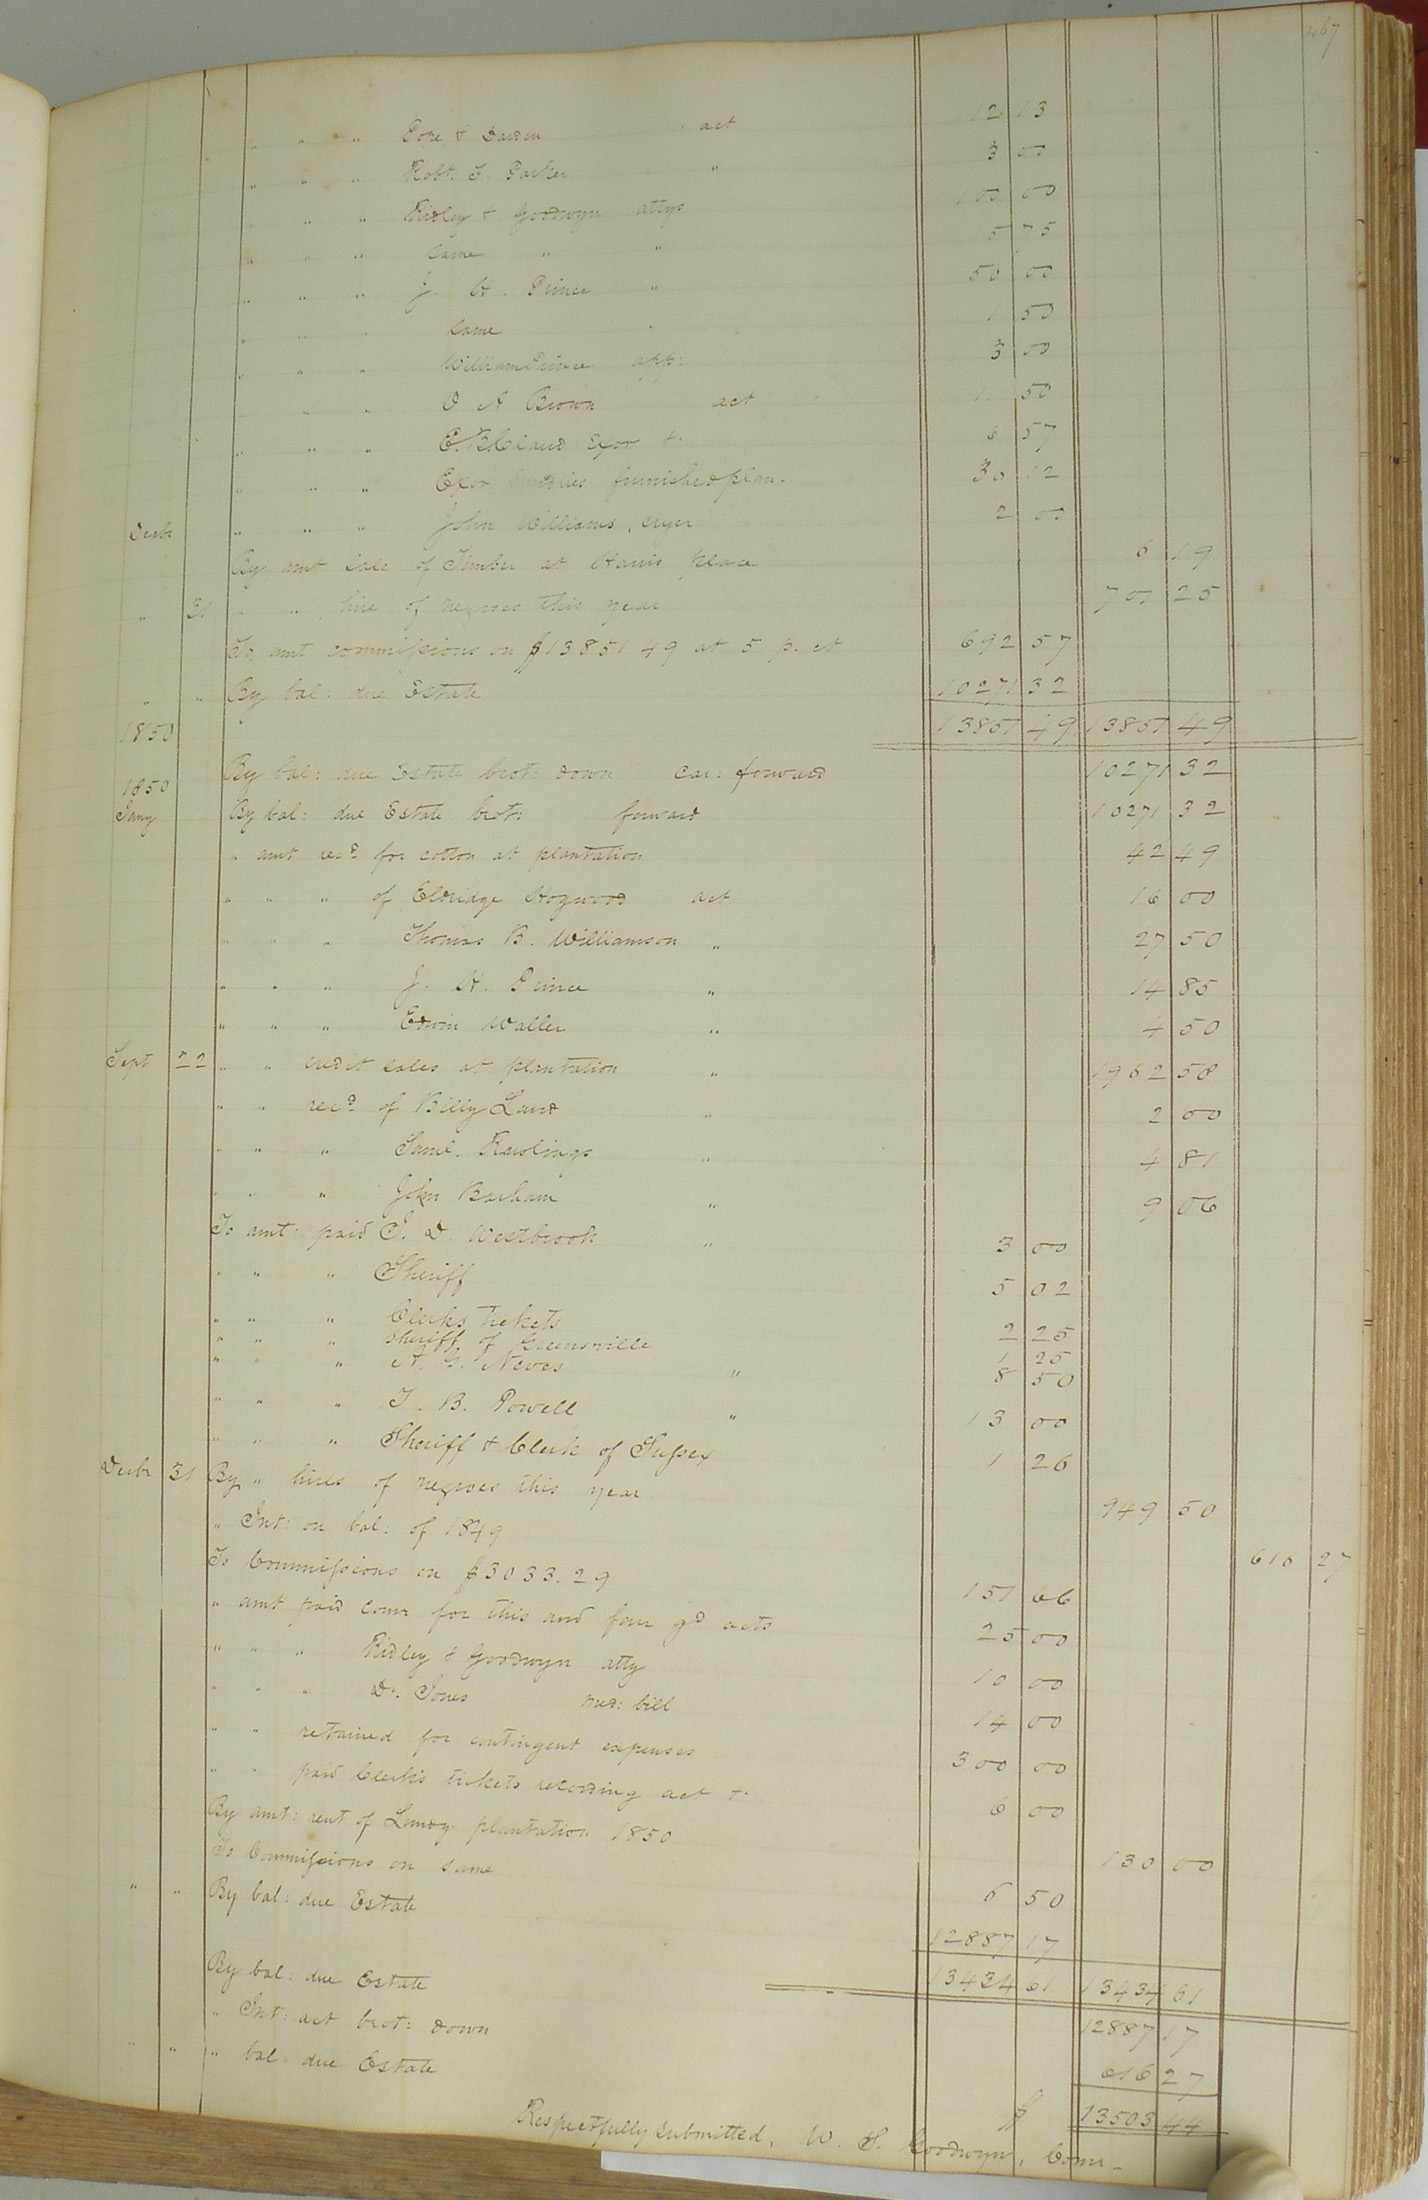 467
" " " Pope & Darden act 12 13
" " " Robt. S. Parker " 3 00
" " " Ridley & Goodwyn attys 100 00
" " " same " " 5 75
" " " J. H. Prince " 50 00
" " " same " 1 50
" " " William Prince app: 3 00
" " " O A Brown act 11 50
" " " Exor &. 6 57
" " " Exor sundries furnished plan. 30 12
Decbr " " " John Williams, cryer 2 00
By amt sale of Timber at Harris place 6 19
" 31 " " hire of negroes this year 701 25
To amt commissions on $13851 49 at 5 p. ct 692 57
" " By bal: due Estate 10271 32
1850 13851 49 13851 49
By bal: due Estate brot: down car: forward 10271 32
1850
Jany By bal: due Estate brot: forward 10271 32
" amt recd for cotton at plantation 42 49
" " " of Eldridge Hogwood act 16 00
" " " Thomas B. Williamson " 27 50
" " " J. H. Prince " 14 85
" " " Edwin Waller " 4 50
Sept 22 " " credit sales at plantation " 1962 58
" " recd of Billy Laud " 2 00
" " " Saml. Rawlings " 4 81
" " " John Barham " 9 06
To amt: paid J. D Westbrook " 3 00
" " " Sheriff 5 02
" " " Clerks tickets 2 25
" " " Sheriff of Greensville 1 25
" " " A. G. Neves " 8 50
" " " J. B. Powell " 13 00
" " " Sheriff & Clerk of Sussex 1 26
Decbr 31 By " hires of negroes this year 949 50
" Int: on bal: of 1849 616 27
To Commissions on $3033.29 151 66
" amt paid comr for this and four gd acts 25 00
" " " Ridley & Goodwyn atty 10 00
" " " Dr. Jones med: bill 14 00
" " retained for contingent expenses 300 00
" " paid Clerk's tickets recording act &. 6 00
By amt: rent of Lundy plantation 1850 130 00
To Commissions on same 6 50
" " By bal: due Estate 12887 17
13434 61 13434 61
By bal. due Estate 12887 17
" Int: act brot: down 616 27
" " " bal. due Estate $ 13503 44
Respectfully submitted, W. S. Goodwyn, Comr_